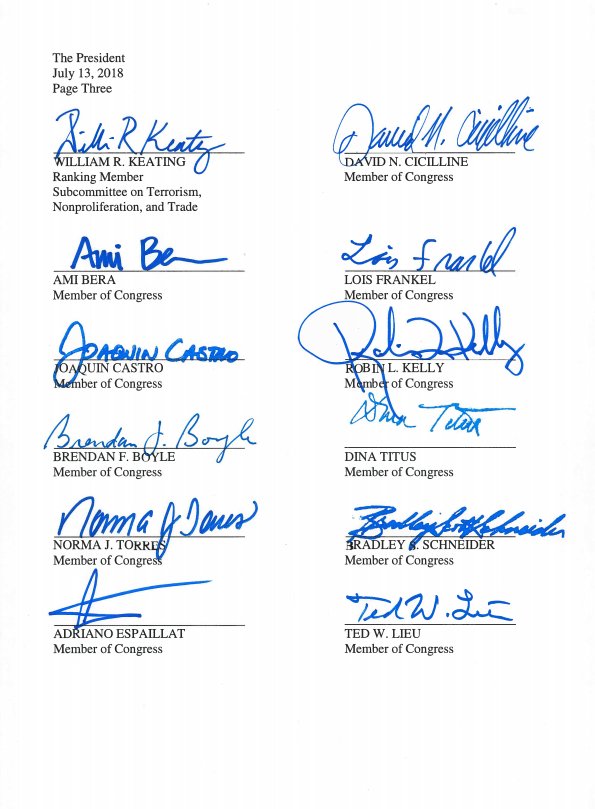 The President
July 13, 2018
Page Three
Willi R Keating
WILLIAM R. KEATING
Ranking Member
Subcommittee on Terrorism,
Nonproliferation, and Trade
David N. Cicilline
DAVID N. CICILLINE
Member of Congress
Ami Bera
AMI BERA
Member of Congress
Lois Frankel
LOIS FRANKEL
Member of Congress
JOAQUIN CASTRO
JOAQUIN CASTRO
Member of Congress
Robin L Kelly
ROBIN L. KELLY
Member of Congress
Brendan F. Boyle
BRENDAN F. BOYLE
Member of Congress
Dina Titus
DINA TITUS
Member of Congress
Norma J Torres
NORMA J. TORRES
Member of Congress
Bradley Scott Schneider
BRADLEY S. SCHNEIDER
Member of Congress
ADRIANO ESPAILLAT
Member of Congress
Ted W. Lieu
TED W. LIEU
Member of Congress